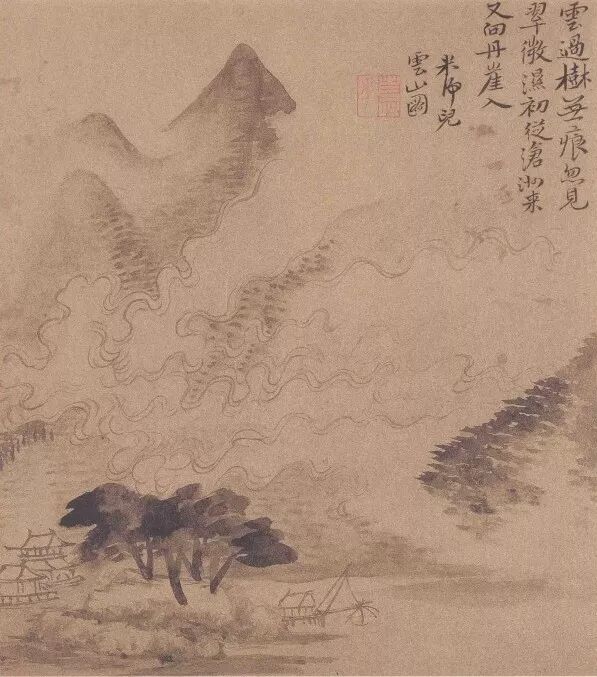 雲過樹無痕忽見
翠微濕初從滄洲来
又向丹崖入
米虎兒
雲山圖